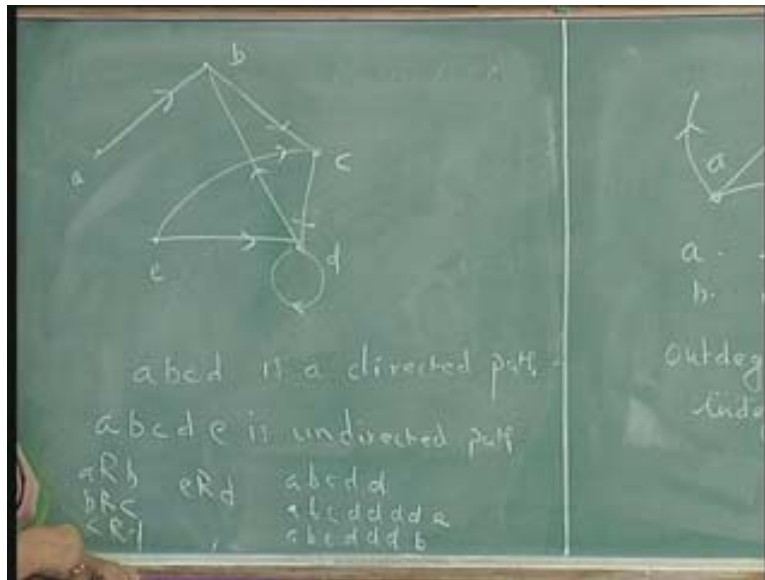 b
a
c
e
d
abcd is a directed path
abcde is undirected path
aRb
bRc
cRd
eRd
abcdd
abcdddde
abcdddb
a
a.
b.
Outdeg
inde